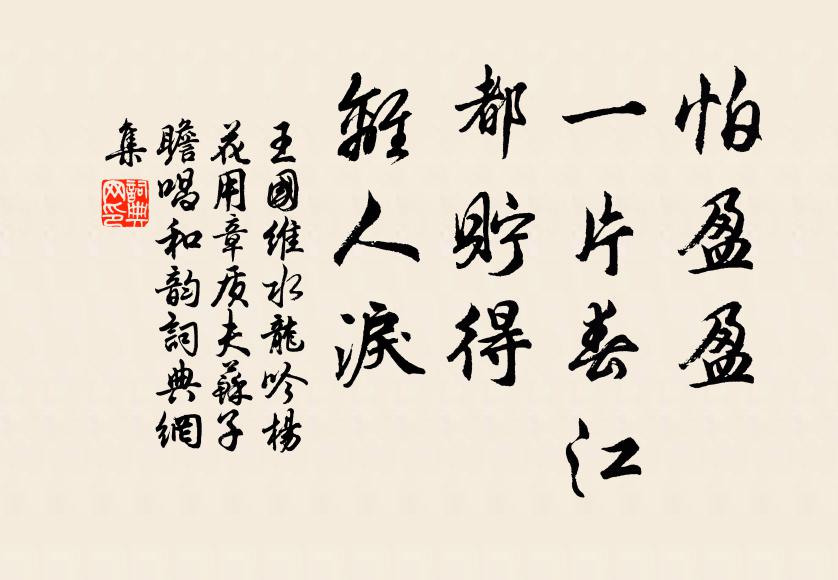 怕盈盈
一片春江
都貯得
離人淚
王國維水龍吟楊
花用章質夫蘇子
瞻唱和韵詞典網
集
詞典
网印